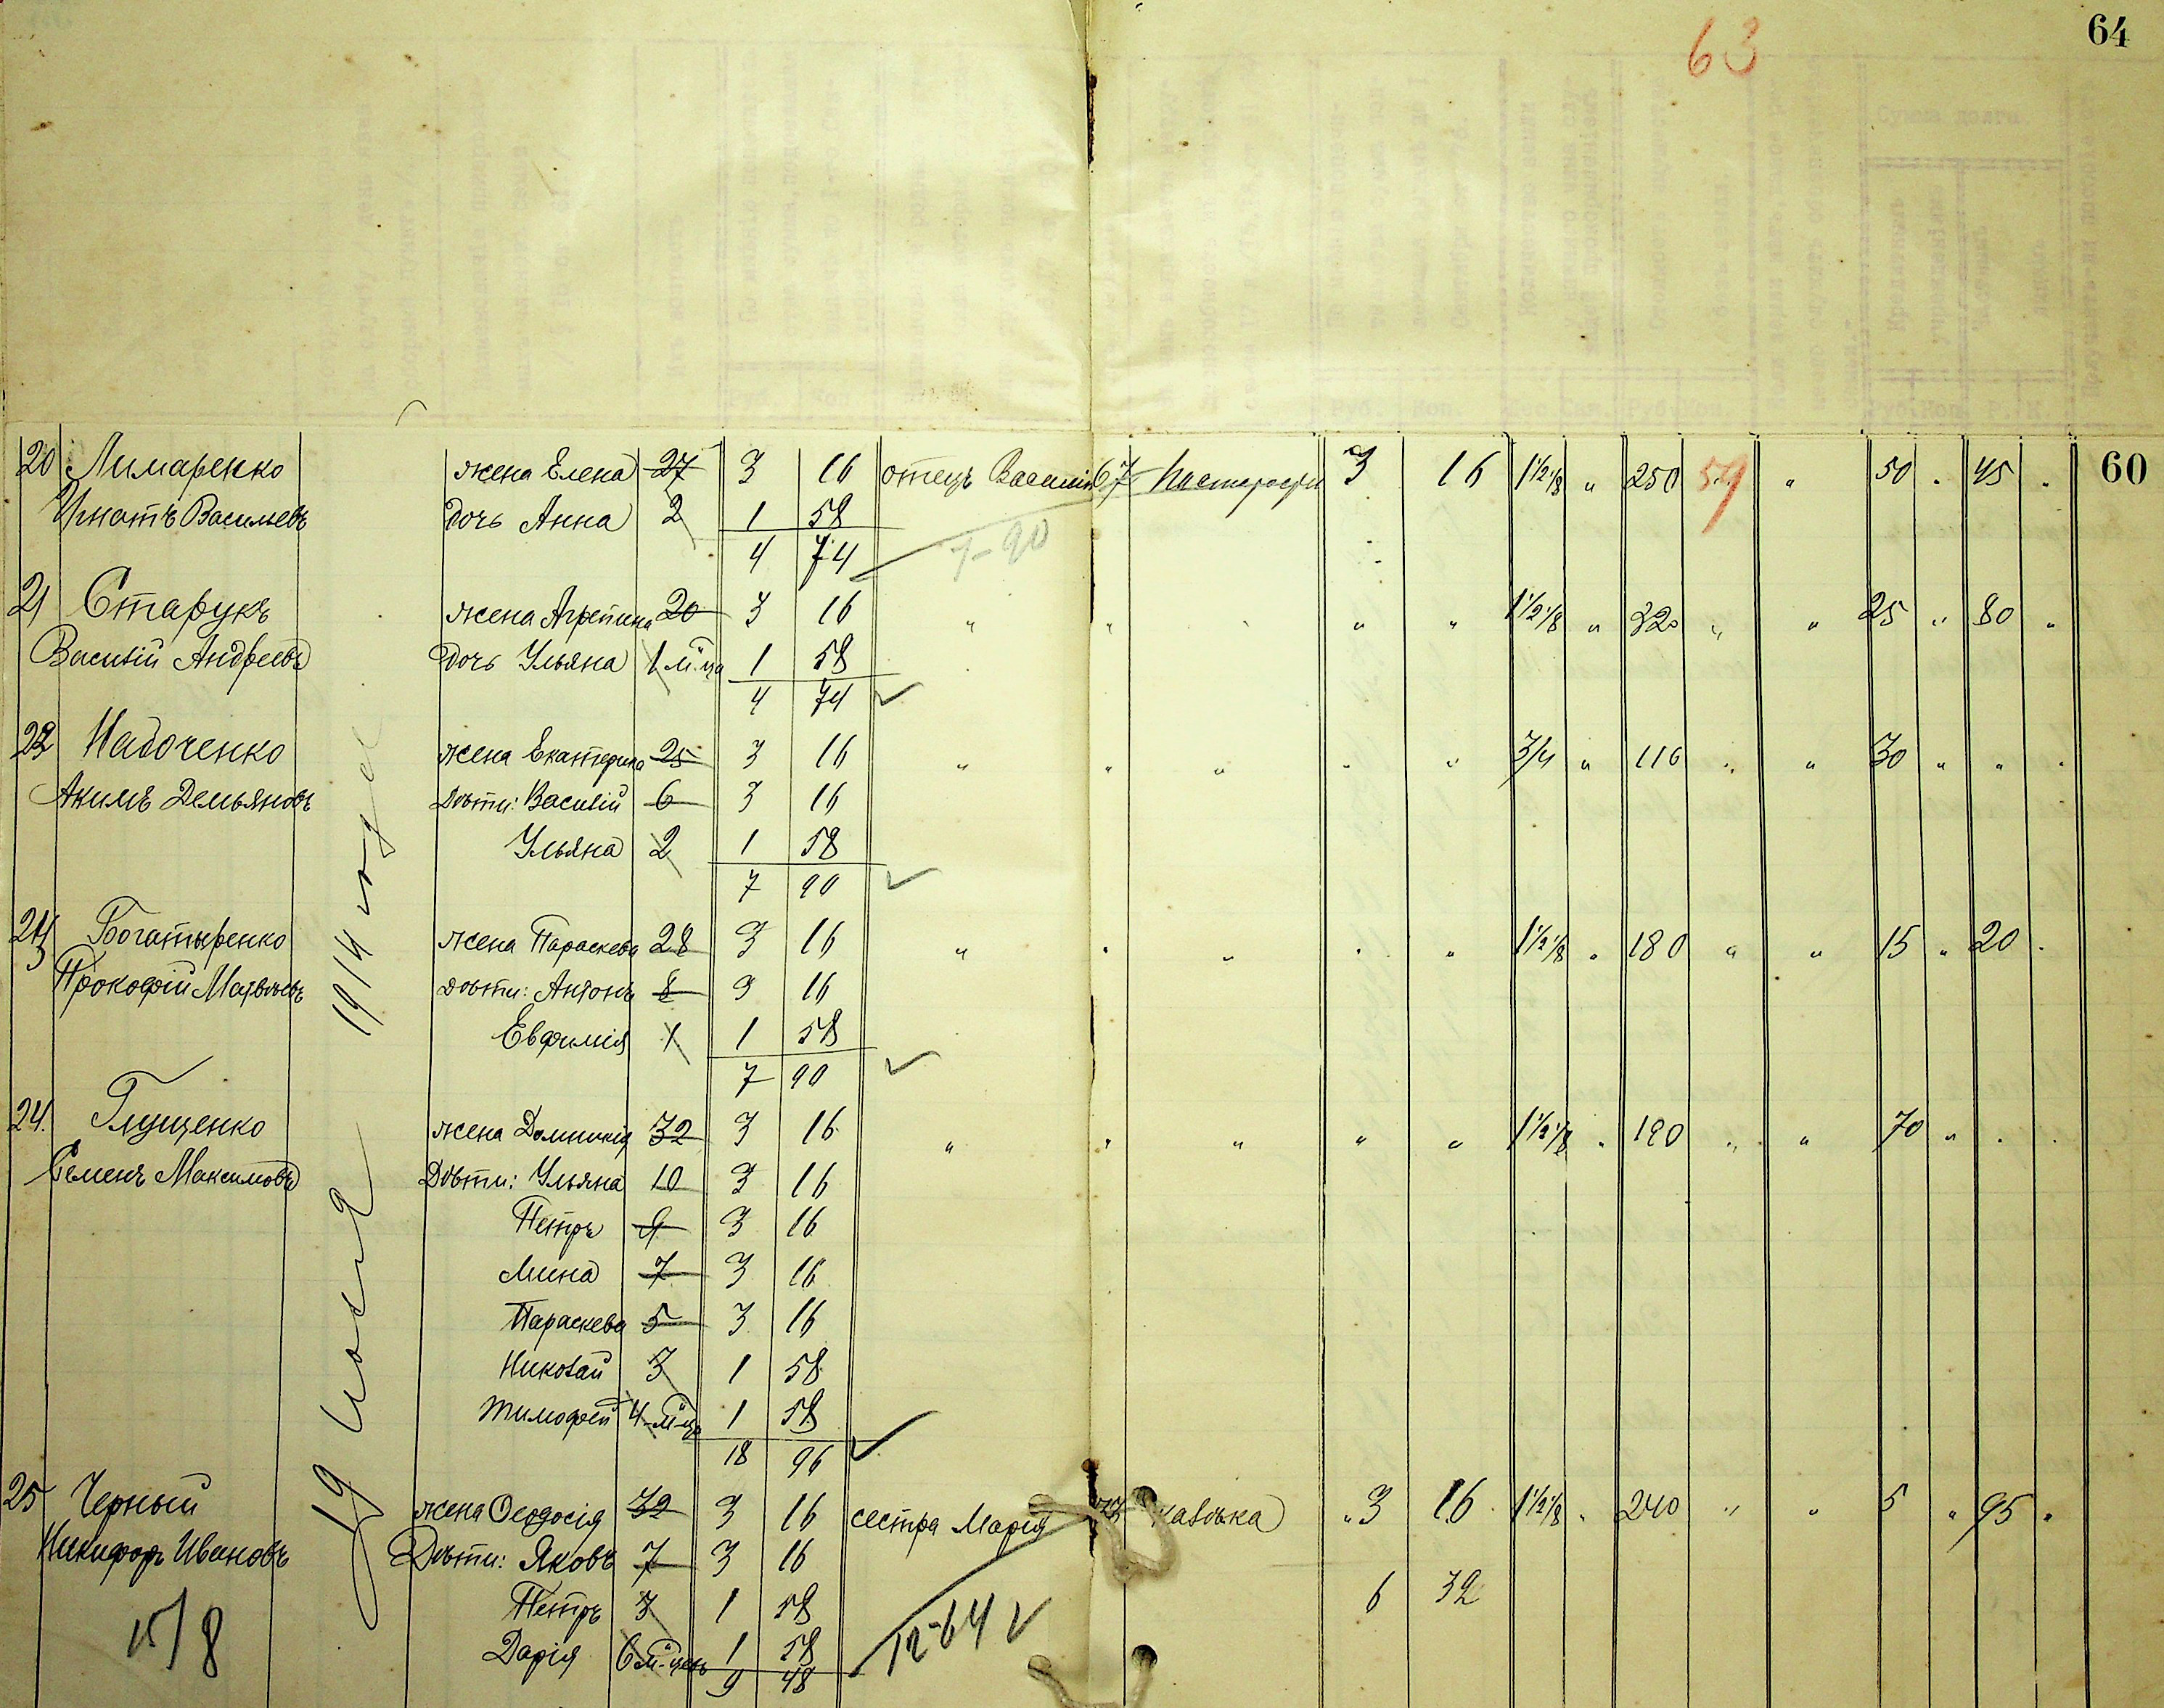 64
63
20 Лимаренко жена Елена 27 3 16 отецъ Василий 67 3 16 1 1/2 1/8 " 250 59 " 50 " 45 " 60
Игнатъ Васильевъ дочь Анна 2 1 58
4 74 7-90
21 Старукъ жена Агрепина 20 3 16 " " " " 1 1/2 1/8 " 320 " " 25 " 80 "
Василій Андреевъ дочь Ульяна 1 м-ца 1 58
4 74
22 Набоченко жена Екатерина 25 3 16 " " " " " 3/4 " 116 " " 30 " " "
Акимъ Демьяновъ Дѣти: Василій 6 3 16
Ульяна 2 1 58
7 90
23 Богатыренко жена Параскева 28 3 16 " " " " " 1 1/2 1/8 " 180 " " 15 " 20 "
Прокофій Матвѣевъ Дѣти: Антонъ 8 3 16
Евфимія 1 1 58
7 90
24. Глущенко жена Домникія 32 3 16 " " " " " 1 1/2 1/8 " 190 " " 70 " " "
Семенъ Максимовъ Дѣти: Ульяна 10 3 16
Петръ 9 3 16
Мина 7 3 16
Параскева 5 3 16
Николай 3 1 58
Тимофей 4 м-ца 1 58
18 96
19 Іюля 1914 года
25 Черный жена Ѳеодосія 32 3 16 сестра Марія калѣка " 3 16 1 1/2 1/8 " 240 " " 5 " 95 "
Никифоръ Ивановъ Дѣти: Яковъ 7 3 16
Петръ 3 1 58 6 32
Дарія 6 м-цевъ 1 58 12-64
9 48
15/8